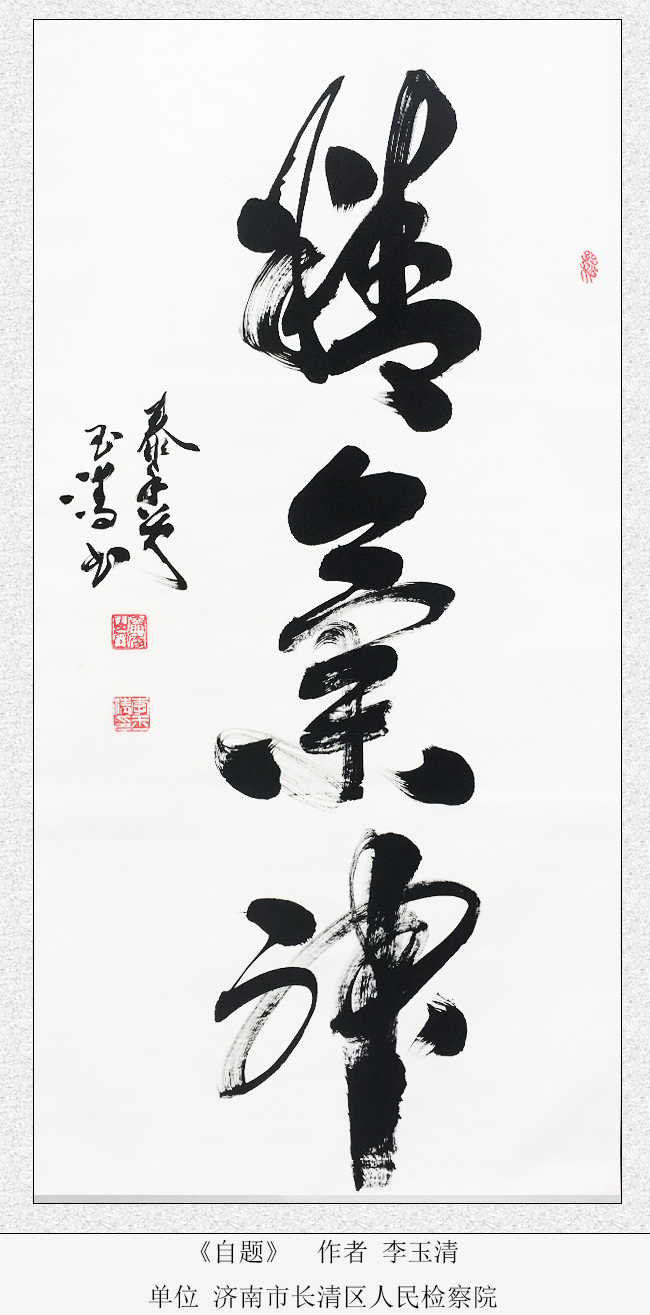 精
氣
神
玉清书
《自题》 作者 李玉清
单位 济南市长清区人民检察院